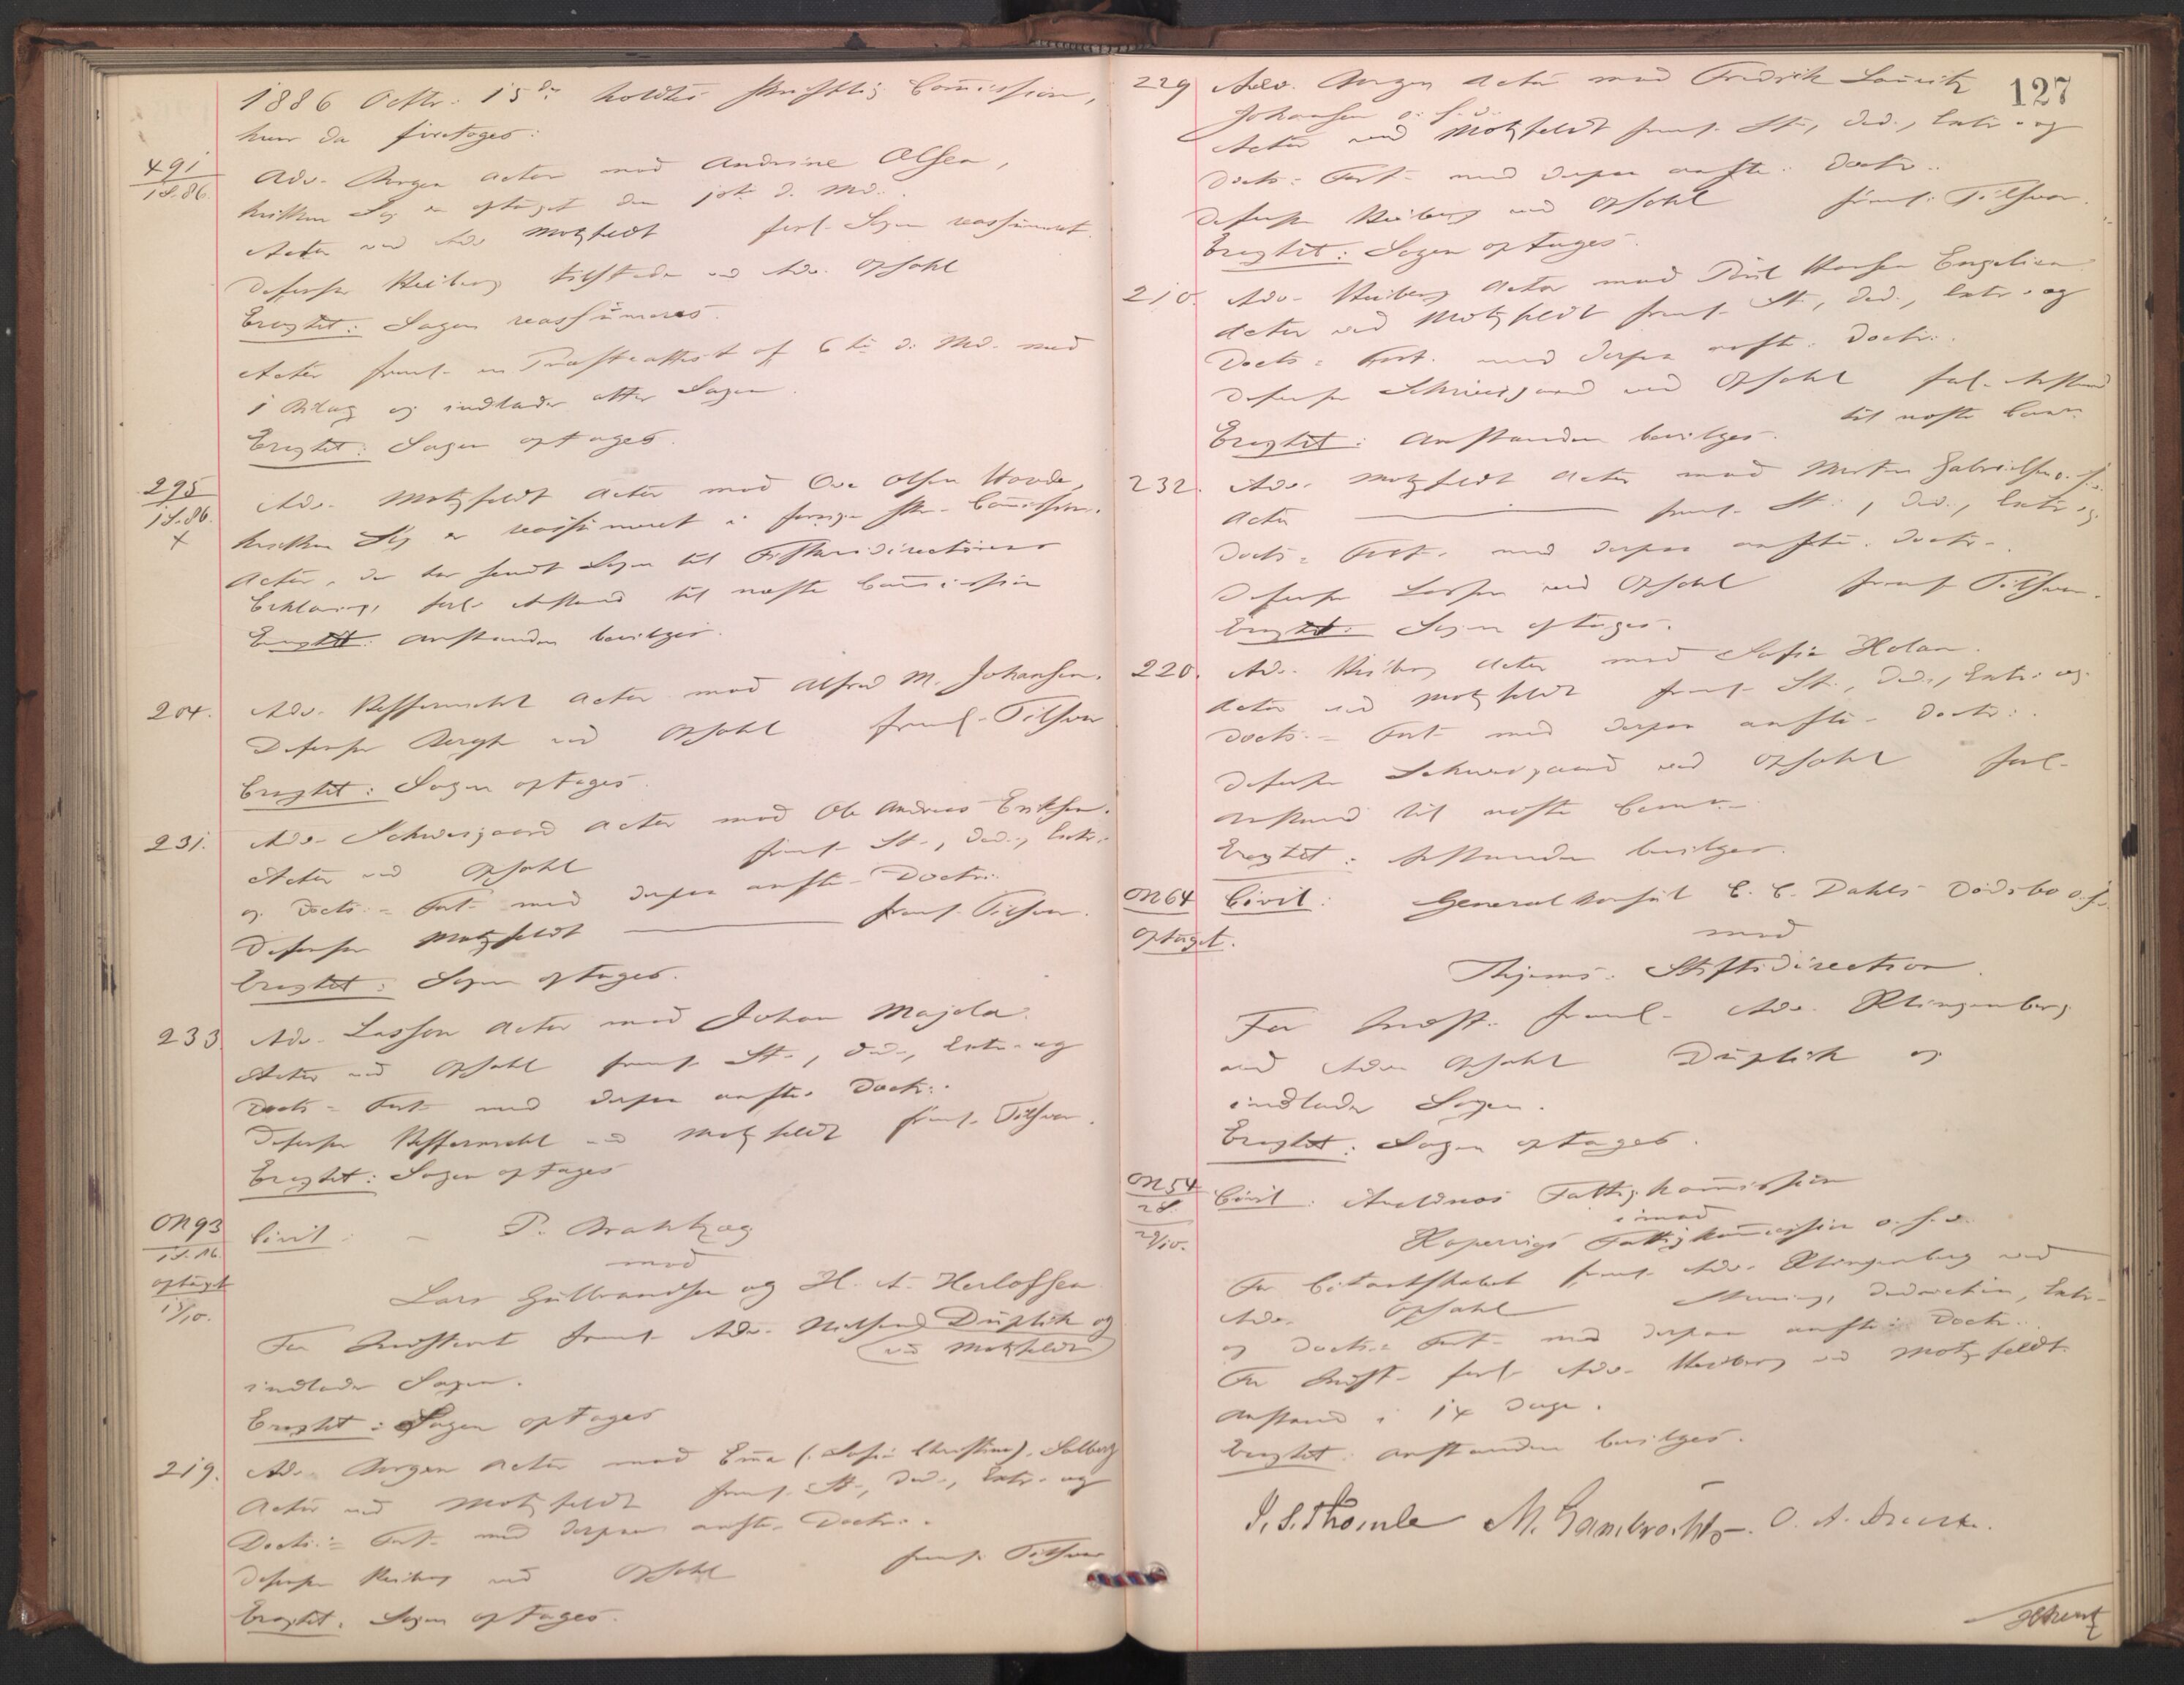 1886 Octbr. 15de holdtes skriftlig Commission,
hvor da foretoges:
491
1S.86.
Adv. Bergen Actor mod Andrine Olsen,
hvilken Sag er optaget den 1ste d. Md.
Actor ved Adv. Motzfeldt forl. Sagen reassumeret.
Defensor Heiberg tilstede ved Adv. Opsahl
Eragtet: Sagen reassumeres.
Actor freml. en Præsteattest af 6te d. Md. med
1 Bilag og indlader atter Sagen.
Eragtet: Sagen optages.
295
1S.86.
x
Adv. Motzfeldt Actor mod Ove Olsen Hovde,
hvilken Sag er reassumeret i forrige skr. Commission.
Actor, der har sendt Sagen til Erklæring, forl. Anstand til næste Commission
Eragtet: Anstanden bevilges.
204.
Adv. Actor mod Alfred M. Johansen.
Defensor Bergh ved Opsahl freml. Tilsvar
Eragtet: Sagen optages.
231.
Adv. Schweigaard Actor mod Ole Andreas Eriksen.
Actor ved Opsahl freml. St., Ded., Extr.
og Docts. = Prot. med derpaa anfte. Doctr.
Defensor Motzfeldt freml. Tilsvar.
Eragtet: Sagen optages.
233
Adv. Lasson Actor mod Johan Majola.
Actor ved Opsahl freml. St., Ded., Extr. og
Docts = Prot. med derpaa anfte. Doctr.
Defensor ved Motzfeldt freml. Tilsvar.
Eragtet: Sagen optages
ON 93
1S.86.
optaget
15/10.
Civil: P.
mod
Lars Gulbrandsen og H. A. Herlofsen
For Indstevnt freml. Adv. Nielsen Duplik og
(ved Motzfeldt)
indlader Sagen.
Eragtet: Sagen optages
219.
Adv. Bergen Actor mod Emma (: Sofie Christine) Solberg
Actor ved Motzfeldt freml. St., Ded., Extr. og
Docts. = Prot. med derpaa anfte. Doctr.
Defensor Heiberg ved Opsahl freml. Tilsvar
Eragtet: Sagen optages.
127
229
Adv. Bergen Actor mod Fredrik Lauritz
Johansen o. s. v.
Actor ved Motzfeldt freml. St., Ded., Extr. og
Docts. = Prot. med derpaa anfte. Doctr.
Defensor Heiberg ved Opsahl freml. Tilsvar.
Eragtet: Sagen optages.
210.
Adv. Heiberg Actor mod Hansen Engelien
Actor ved Motzfeldt freml. St., Ded., Extr. og
Docts = Prot. med derpaa anfte. Doctr.
Defensor Schweigaard ved Opsahl forl. Anstand
til næste Comm.
Eragtet: Anstanden bevilges.
232.
Adv. Motzfeldt Actor mod Morten Gabrielsen o. s. v.
Actor freml. St., Ded., Extr. og
Docts = Prot. med derpaa anfte. Doctr.
Defensor Lasson ved Opsahl freml. Tilsvar.
Eragtet: Sagen optages.
220.
Adv. Heiberg Actor mod Sofie Holan.
Actor ved Motzfeldt freml. St., Ded., Extr. og
Docts. = Prot. med derpaa anfte. Doctr.
Defensor Schweigaard ved Opsahl forl.
Anstand til næste Comm.
Eragtet: Anstanden bevilges.
ON 64
optaget.
Civil: Generalkonsul C. C. Dahls Dødsbo o. s. v.
mod
Thjems. Stiftsdirection.
For Indst. freml. Adv. Klingenberg
ved Adv. Opsahl Duplik og
indlader Sagen.
Eragtet: Sagen optages.
ON 54
2S.
29/10.
Civil: Avaldsnæs Fattigkommission
imod
Kopervigs Fattigkommission o. s. v.
For Citantskabet freml. Adv. Klingenberg ved
Adv. Opsahl Stevning, Deduction, Extr.
og Docts. = Prot. med derpaa anfte. Doctr.
For Indst. forl. Adv. Heiberg ved Motzfeldt
Anstand i 14 Dage.
Eragtet: Anstanden bevilges.
J. S. Thomle M. Lambrechts.